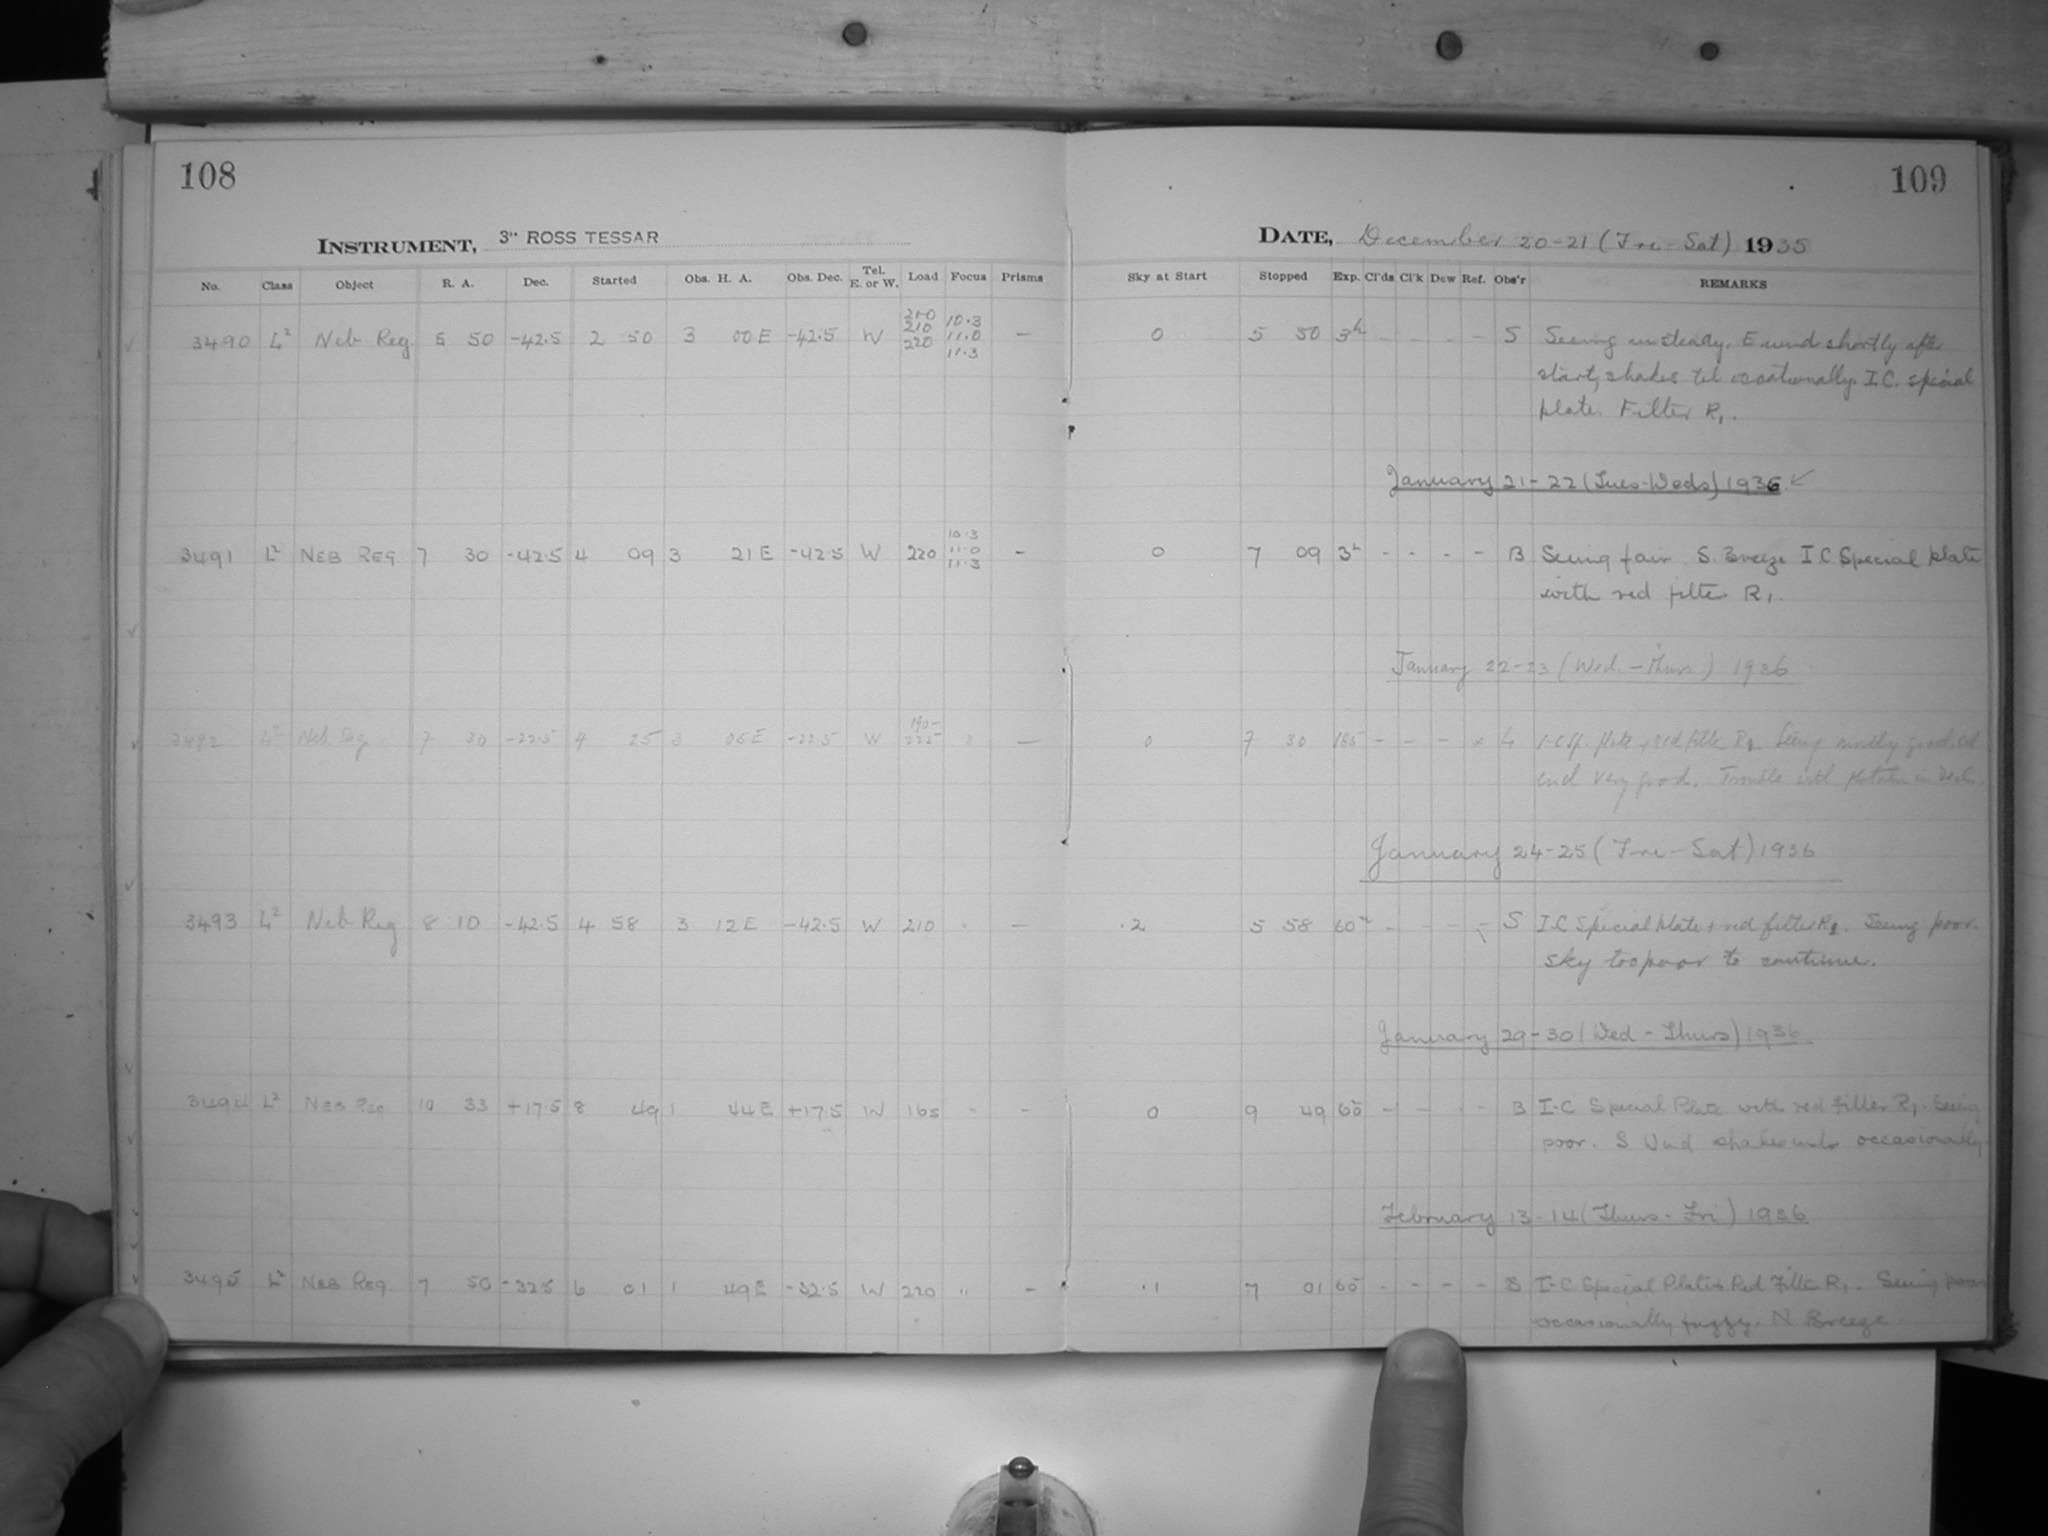 108
109
INSTRUMENT, 3" ROSS TESSAR
DATE, December 20-21 (Fri-Sat) 1935
No. Class Object R. A. Dec. Started Obs. H. A. Obs. Dec. Tel. E. or W. Load Focus Prisms Sky at Start Stopped Exp. Cl'ds Cl'k Dew Ref. Obs'r REMARKS
3490 L² Neb Reg. 5 50 -42.5 2 50 3 00 E -42.5 W 200 210 220 10.3 11.0 11.3 — 0 5 50 3h - - - - S Seeing unsteady. E wind shortly after
start, shakes tel occationally. I.C. special
plate. Filter R1.
January 21-22 (Tues-Weds) 1936
3491 L² NEB REG 7 30 -42.5 4 09 3 21 E -42.5 W 220 10.3 11.0 11.3 - 0 7 09 3h - - - - B Seeing fair S. Breeze I C Special plate
with red filter R1.
January 22-23 (Wed.-Thurs) 1936
3492 L² Neb Reg. 7 30 -22.5 4 25 3 05 E -22.5 W 190- 225 " — 0 7 30 185 - - - plate + red filter R1. Seeing mostly good at
end very good. Trouble with in Decl.
January 24-25 (Fri-Sat) 1936
3493 L² Neb Reg 8 10 -42.5 4 58 3 12 E -42.5 W 210 " — .2 5 58 60 - - - - S I.C Special plate + red filter R1. Seeing poor.
Sky too poor to continue.
January 29-30 (Wed-Thurs) 1936
3494 L² NEB REG 10 33 +17.5 8 49 1 44 E +17.5 W 165 " - 0 9 49 60 - - - - B I-C Special Plate with red filter R1. Seeing
poor. S Wind shakes occasionally.
February 13-14 (Thurs-Fri) 1936
3495 L² NEB REG. 7 50 -32.5 6 01 1 49 E -32.5 W 220 " - .1 7 01 60 - - - - B I-C Special Plate + Red Filter R1. Seeing poor
occasionally fuzzy. N Breeze.